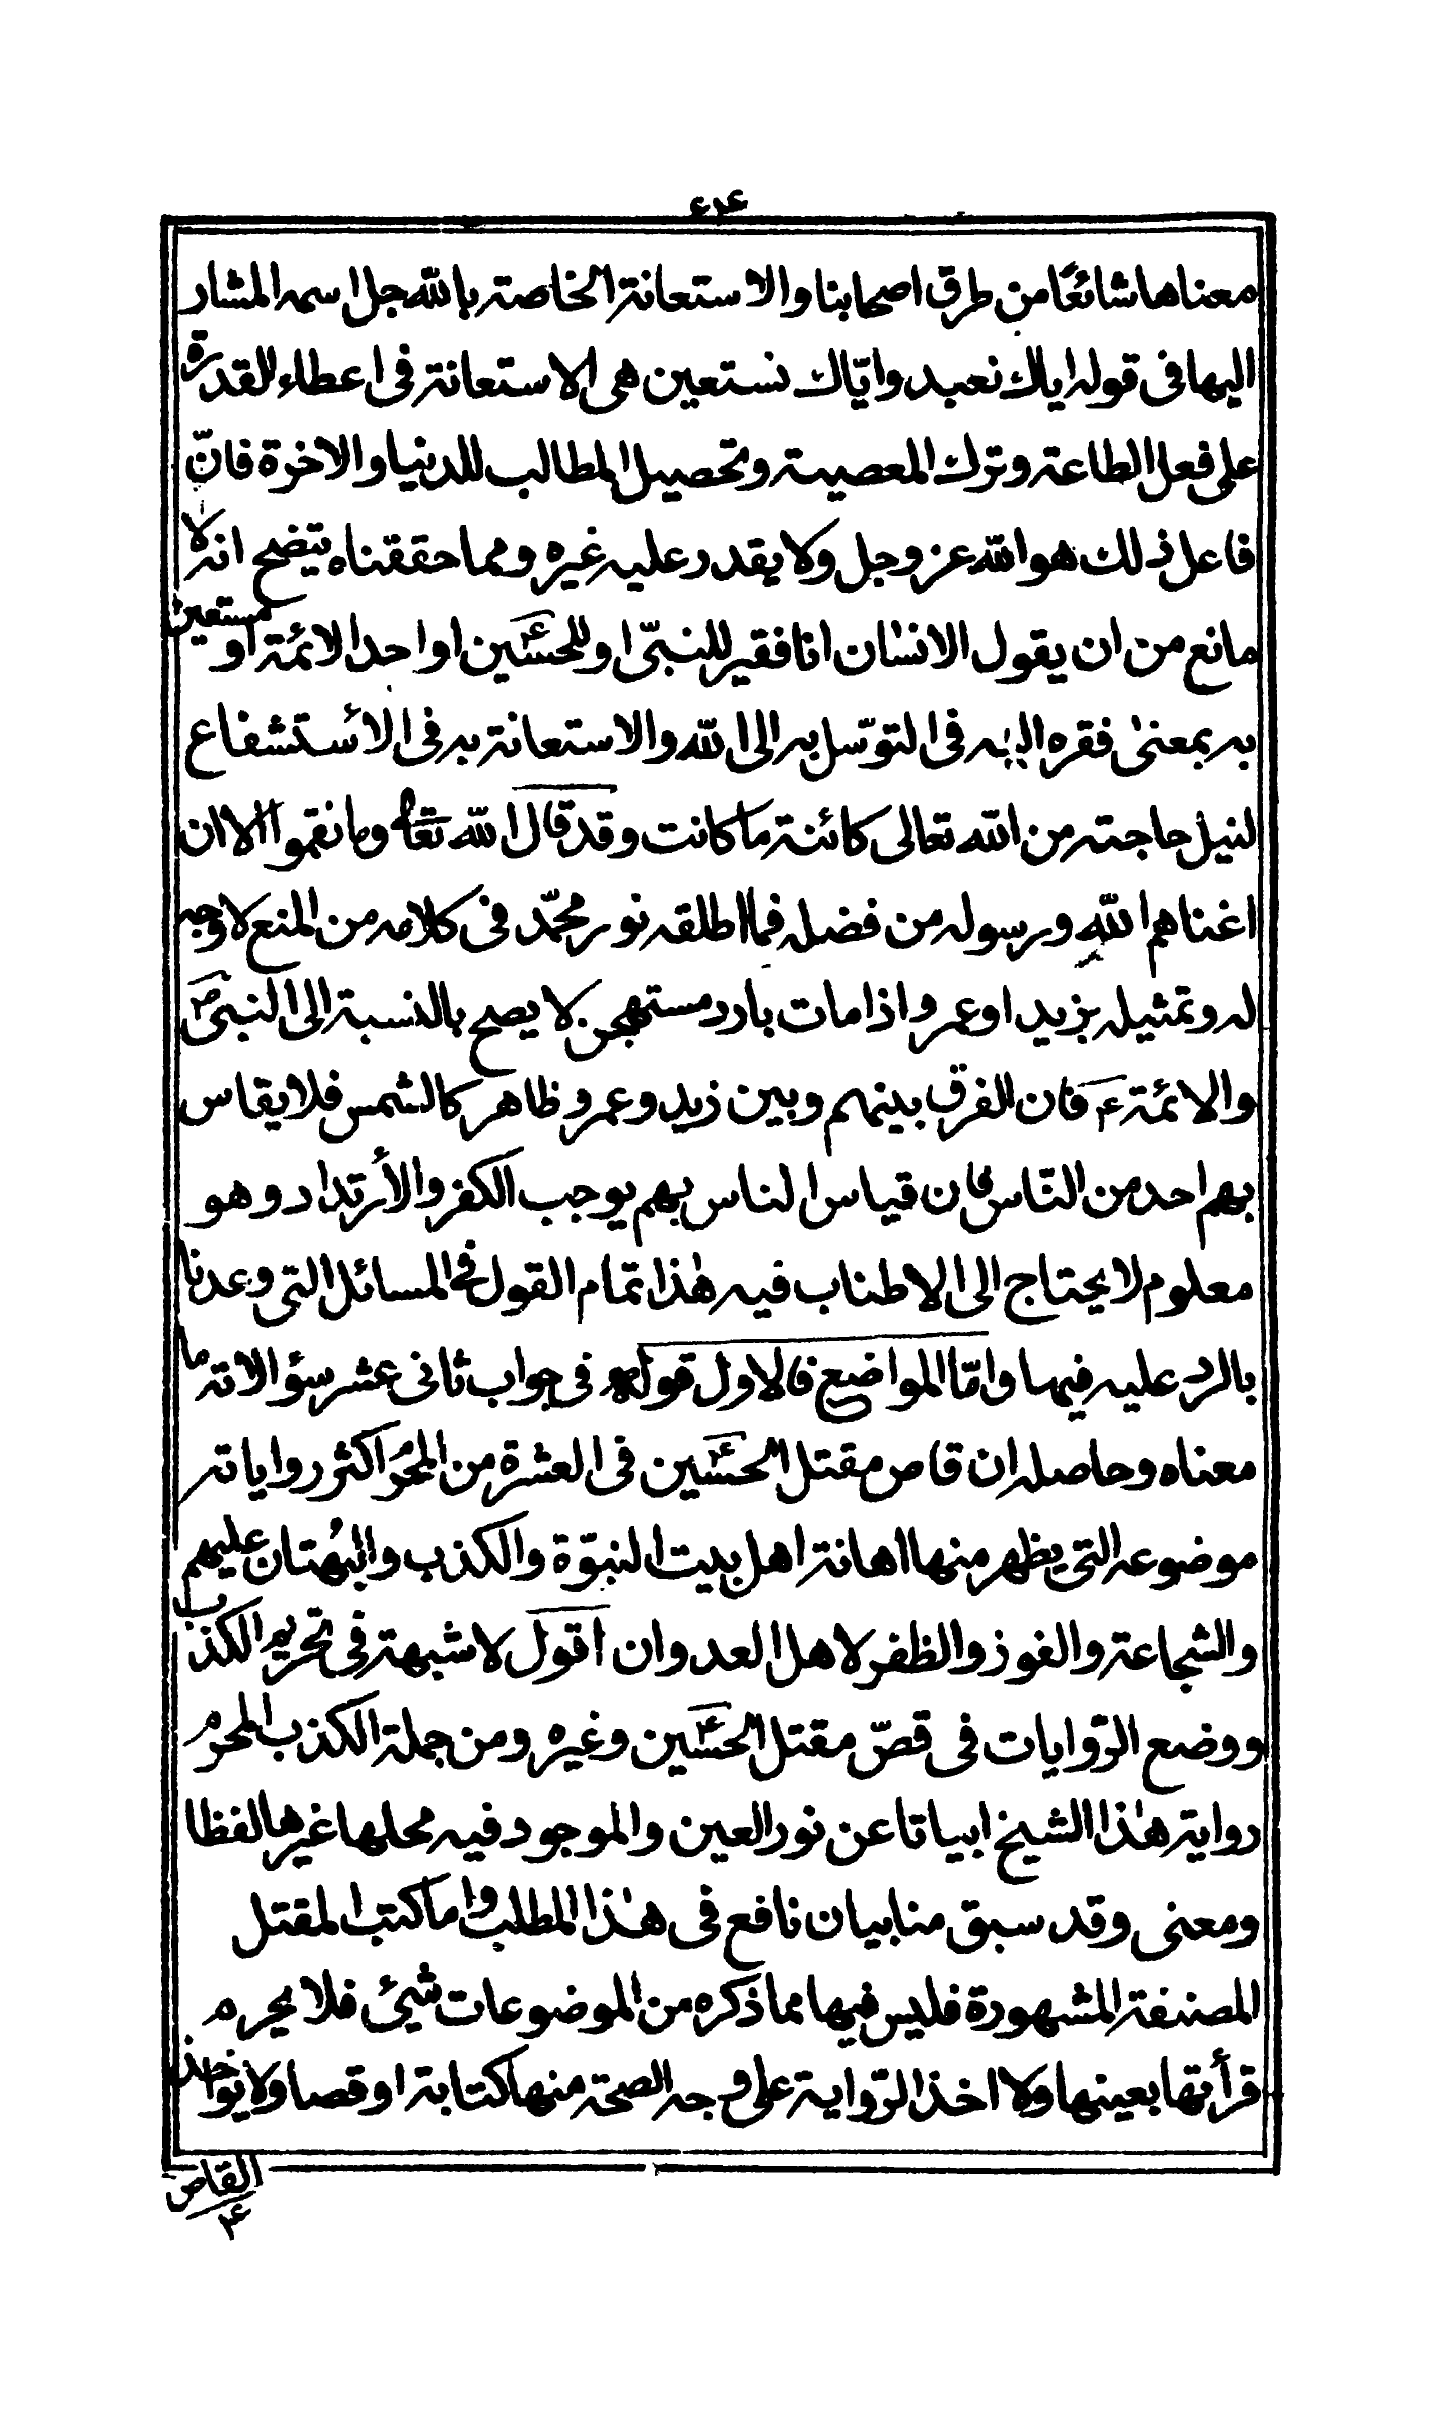 معناها شائعًا من طرق اصحابنا والاستعانة الخاصة بالله جل اسمه المشار
اليها فى قوله اياك نعبد وايّاك نستعين هى الاستعانة فى اعطاء القدرة
على فعل الطاعة وترك المعصية وتحصيل المطالب للدنيا والاخرة فانّ
فاعل ذلك هو الله عز وجل ولا يقدر عليه غيره ومما حققناه يتضح انه لا
مانع من ان يقول الانسان انا فقير للنبىّ او للحسينؑ او احد الائمة او مستعين
به بمعنى فقره اليه فى التوسّل به الى الله والاستعانة به فى الأستشفاع
لنيل حاجته من الله تعالى كائنة ما كانت وقد قال الله تعالى وما نقموا الا ان
اغناهم الله ورسوله من فضله فما اطلقه نور محمّد فى كلامه من المنع لا وجه
له وتمثيله بزيد او عمرو اذا مات بارد مستهجن لا يصح بالنسبة الى النبىؐ
والائمةؑ فان الفرق بينهم وبين زيد وعمرو ظاهر كالشمس فلا يقاس
بهم احد من النّاس فان قياس الناس بهم يوجب الكفر والأرتداد وهو
معلوم لا يحتاج الى الاطناب فيه هٰذا تمام القول فى المسائل التى وعدنا
بالرد عليه فيها وامّا المواضع فالاول قوله فى جواب ثانى عشر سؤالاته ما
معناه وحاصله ان قاص مقتل الحسينؑ فى العشرة من المحرّم اكثر رواياته
موضوعه التى يظهر منها اهانة اهل بيت النبوّة والكذب والبهُتان عليهم
والشجاعة والفوز والظفر لاهل العدوان اقول لا شبهة فى تحريم الكذب
ووضع الرّوايات فى قصّ مقتل الحسينؑ وغيره ومن جملة الكذب المحرم
رواية هٰذا الشيخ ابياتا عن نور العين والموجود فيه محلها غيرها لفظا
ومعنى وقد سبق منا بيان نافع فى هٰذا المطلب واما كتب المقتل
المصنفة المشهودة فليس فيها مما ذكره من الموضوعات شيئ فلا يحرم
قرأتها بعينها ولا اخذ الرّواية على وجه الصحة منها كتابة او قصا ولا يؤاخذ
القاص